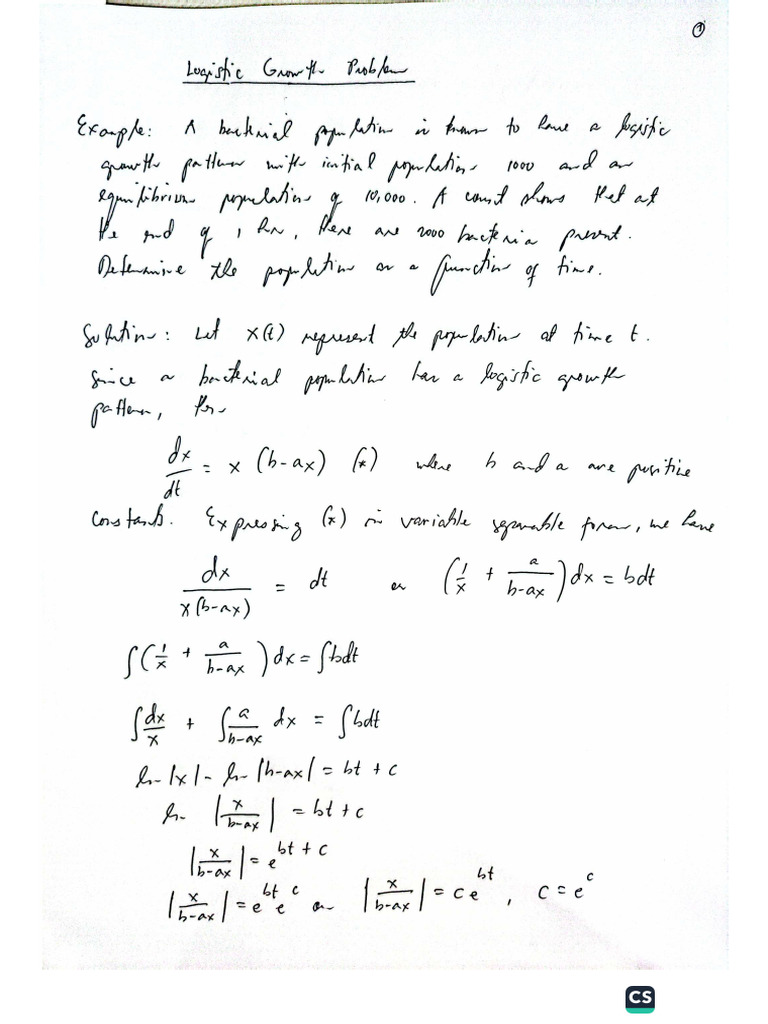 ①
Logistic Growth Problem
Example: A bacterial population is known to have a logistic
growth pattern with initial population 1000 and an
equilibrium population of 10,000. A count shows that at
the end of 1 hr, there are 2000 bacteria present.
Determine the population as a function of time.
Solution: Let x(t) represent the population at time t.
Since a bacterial population has a logistic growth
pattern, then
dx/dt = x (b-ax) (*) where b and a are positive
constants. Expressing (*) in variable separable form, we have
dx/x(b-ax) = dt or (1/x + a/b-ax) dx = bdt
∫(1/x + a/b-ax) dx = ∫bdt
∫dx/x + ∫a/b-ax dx = ∫bdt
ln |x| - ln |b-ax| = bt + c
ln |x/b-ax| = bt + c
|x/b-ax| = e^{bt + c}
|x/b-ax| = e^{bt} e^{c} or |x/b-ax| = c e^{bt}, c = e^{c}
CS